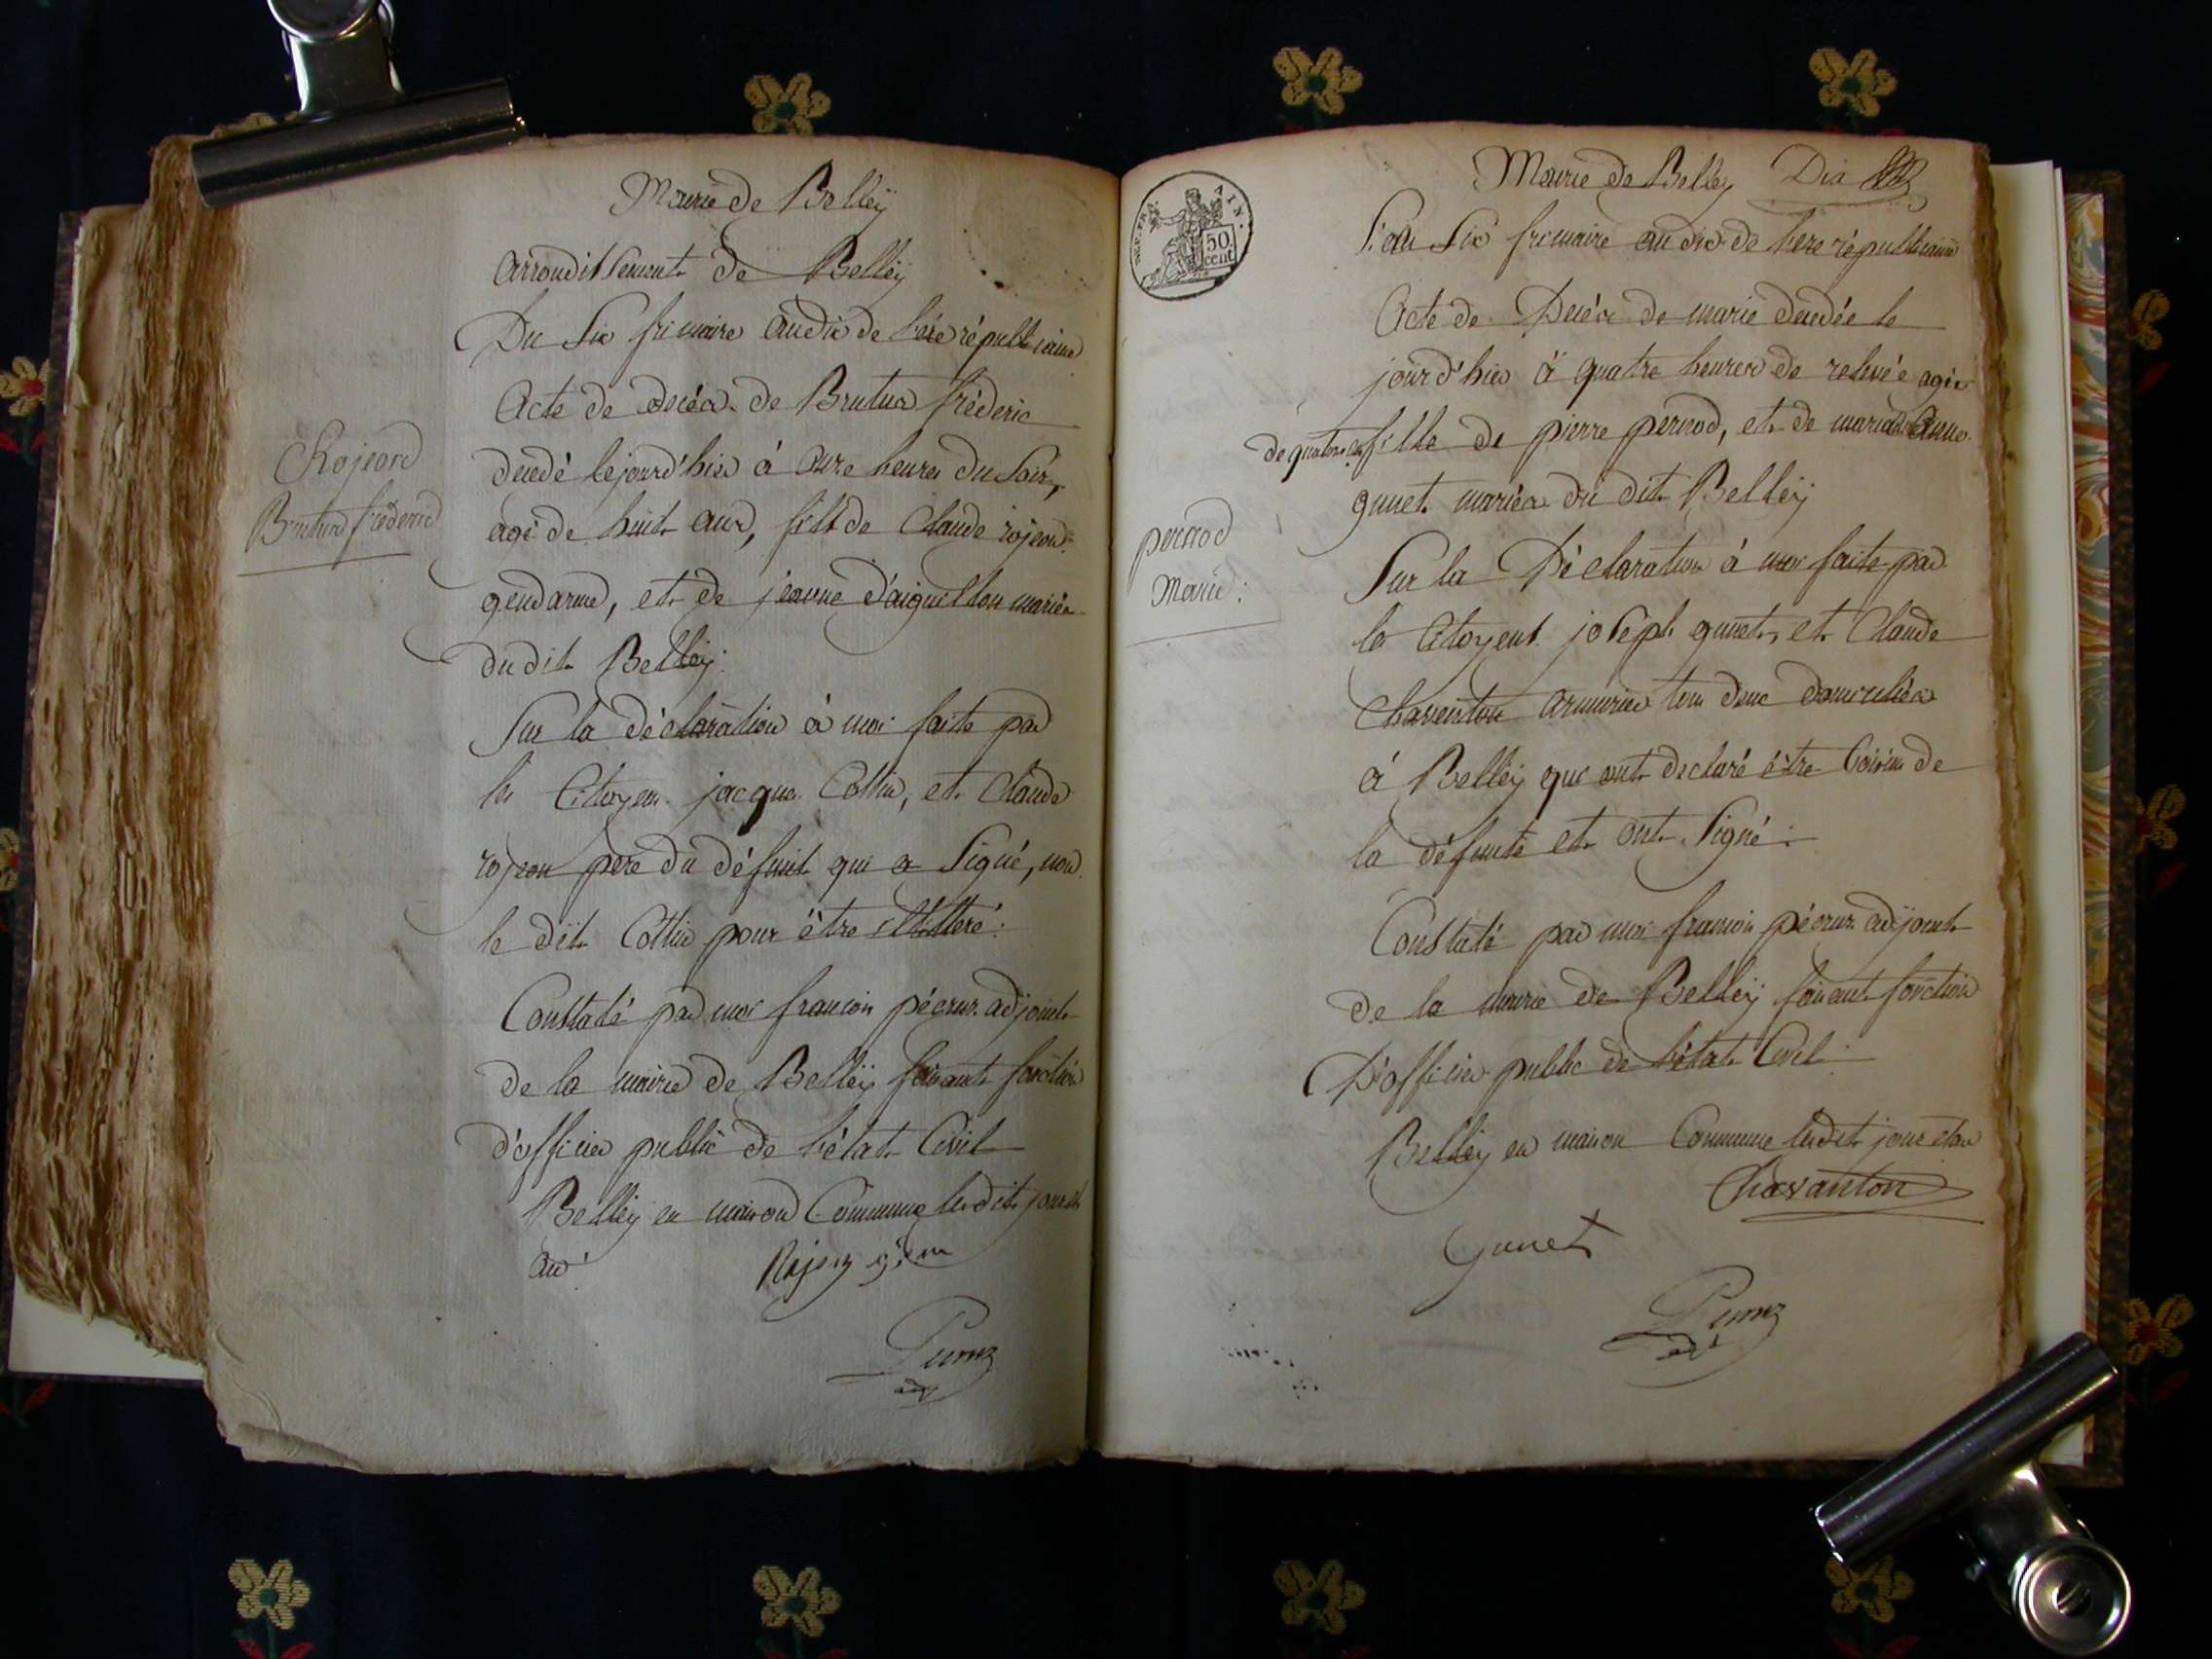 Mairie de Belleÿ
arrondissement de Belleÿ
Du Six frimaire an dix de l'ère républicaine
Acte de décés de Brutus fréderic
décédé le jourd'hier à onze heures du Soir,
agé de huit ans, fils de Claude rojeon
gendarme, et de jeanne d'aiguillon mariés
du dit Belleÿ.
Rojeond
Brutus fréderic
Sur la déclaration à moi faite par
les Citoyens jacques Collin, et Claude
rojeon pere du défunt qui a Signé, non
le dit Collin pour être illitteré.
Constaté par moi françois adjoint
de la mairie de Belleÿ faisant fonction
d'officier public de l'état Civil
Belleÿ en maison Commune lesdits jour et
an
Rojeon
Mairie de Belley Dix
Du Six frimaire an dix de l'ere républicaine
Acte de Décés de marie décédée le
jourd'hier à quatre heures de relevée agée
de quatorze ans fille de pierre pernod, et de marie anne
gunet mariés du dit Belleÿ
pernod
Marie:
Sur la Déclaration à moi faite par
les Citoyens joseph gunet, et Claude
Chaventon armurier tous deux domiciliés
à Belleÿ qui ont declaré être voisins de
la défunte et ont Signé.
Constaté par moi françois adjoint
de la mairie de Belleÿ faisant fonction
D'officier public de l'état Civil.
Belleÿ en maison Commune lesdits jour et an
Chavanton
Gunet
REP. FRA. AIN.
50 cent